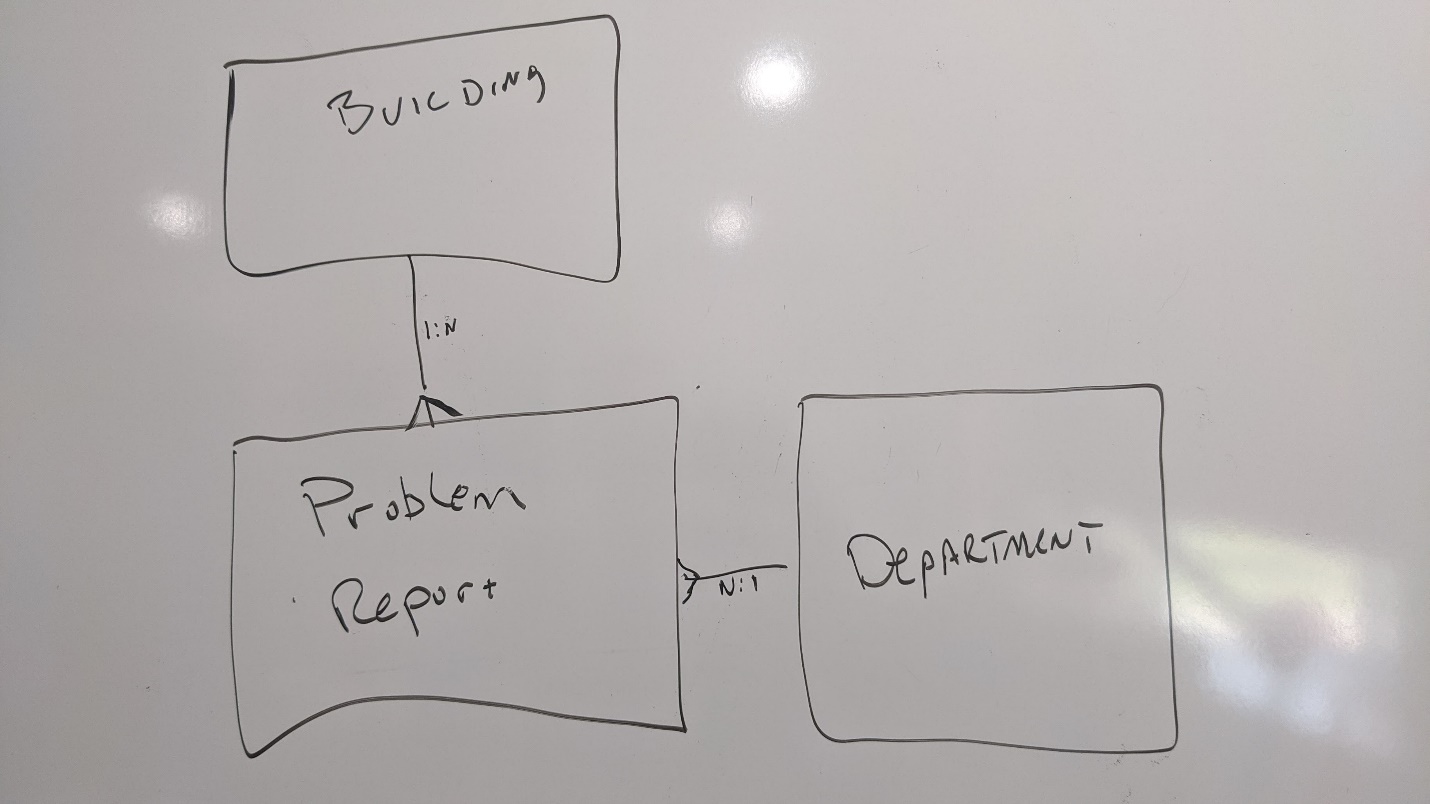 BUILDING
1:N
Problem
Report
N:1
DEPARTMENT